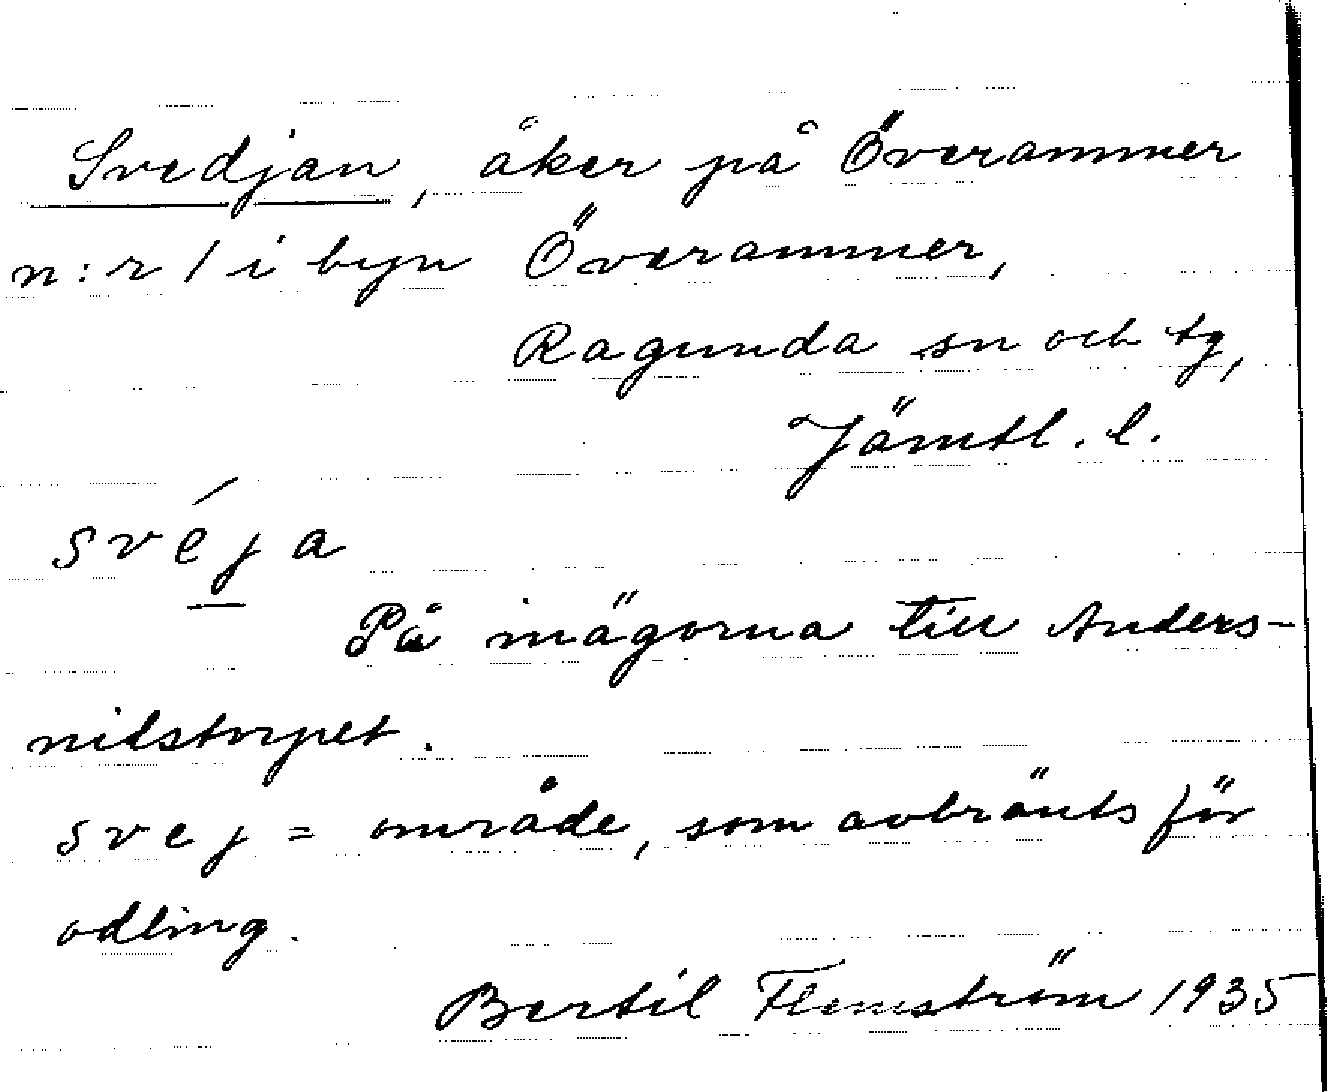 Svedjan, åker på Överammer
n:r 1 i byn Överammer,
Ragunda sn och tg,
Jämtl. l.
svéja
På mägorna till Anders-
nilstorpet.
svej = område, som avbränts för
odling.
Bertil Flemström 1935